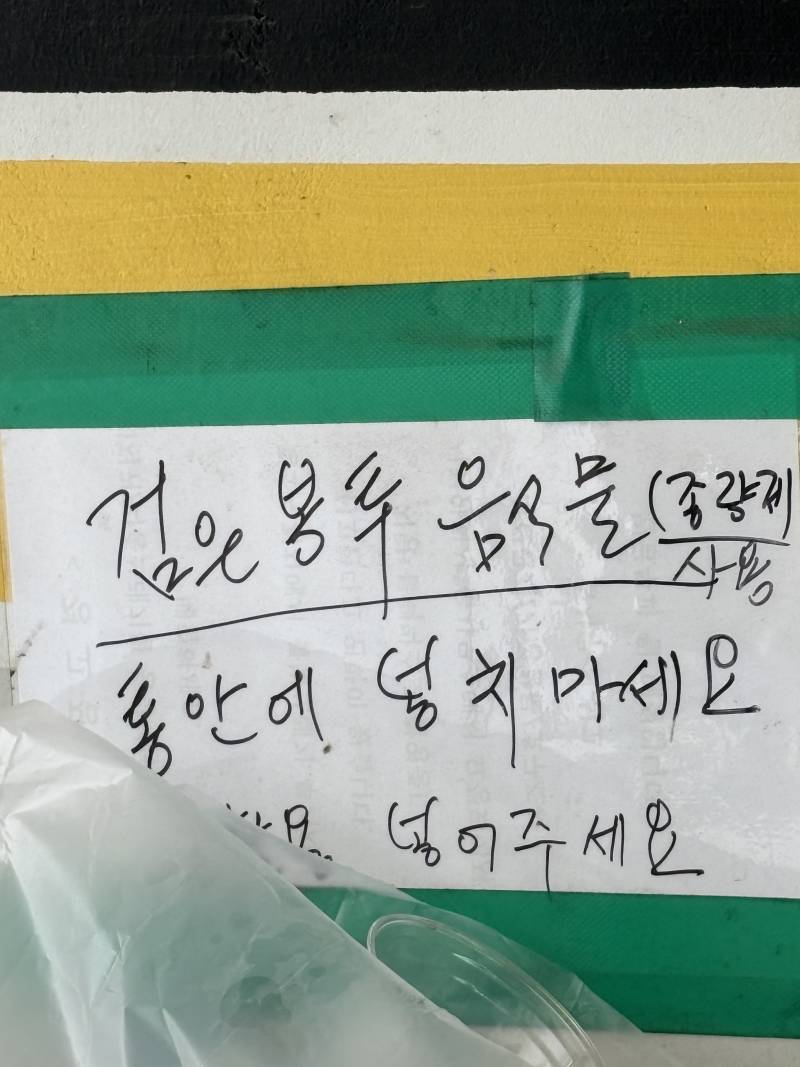 검은 봉투 음식물 (종량제
사용
통안에 넣치 마세요
넣어주세요